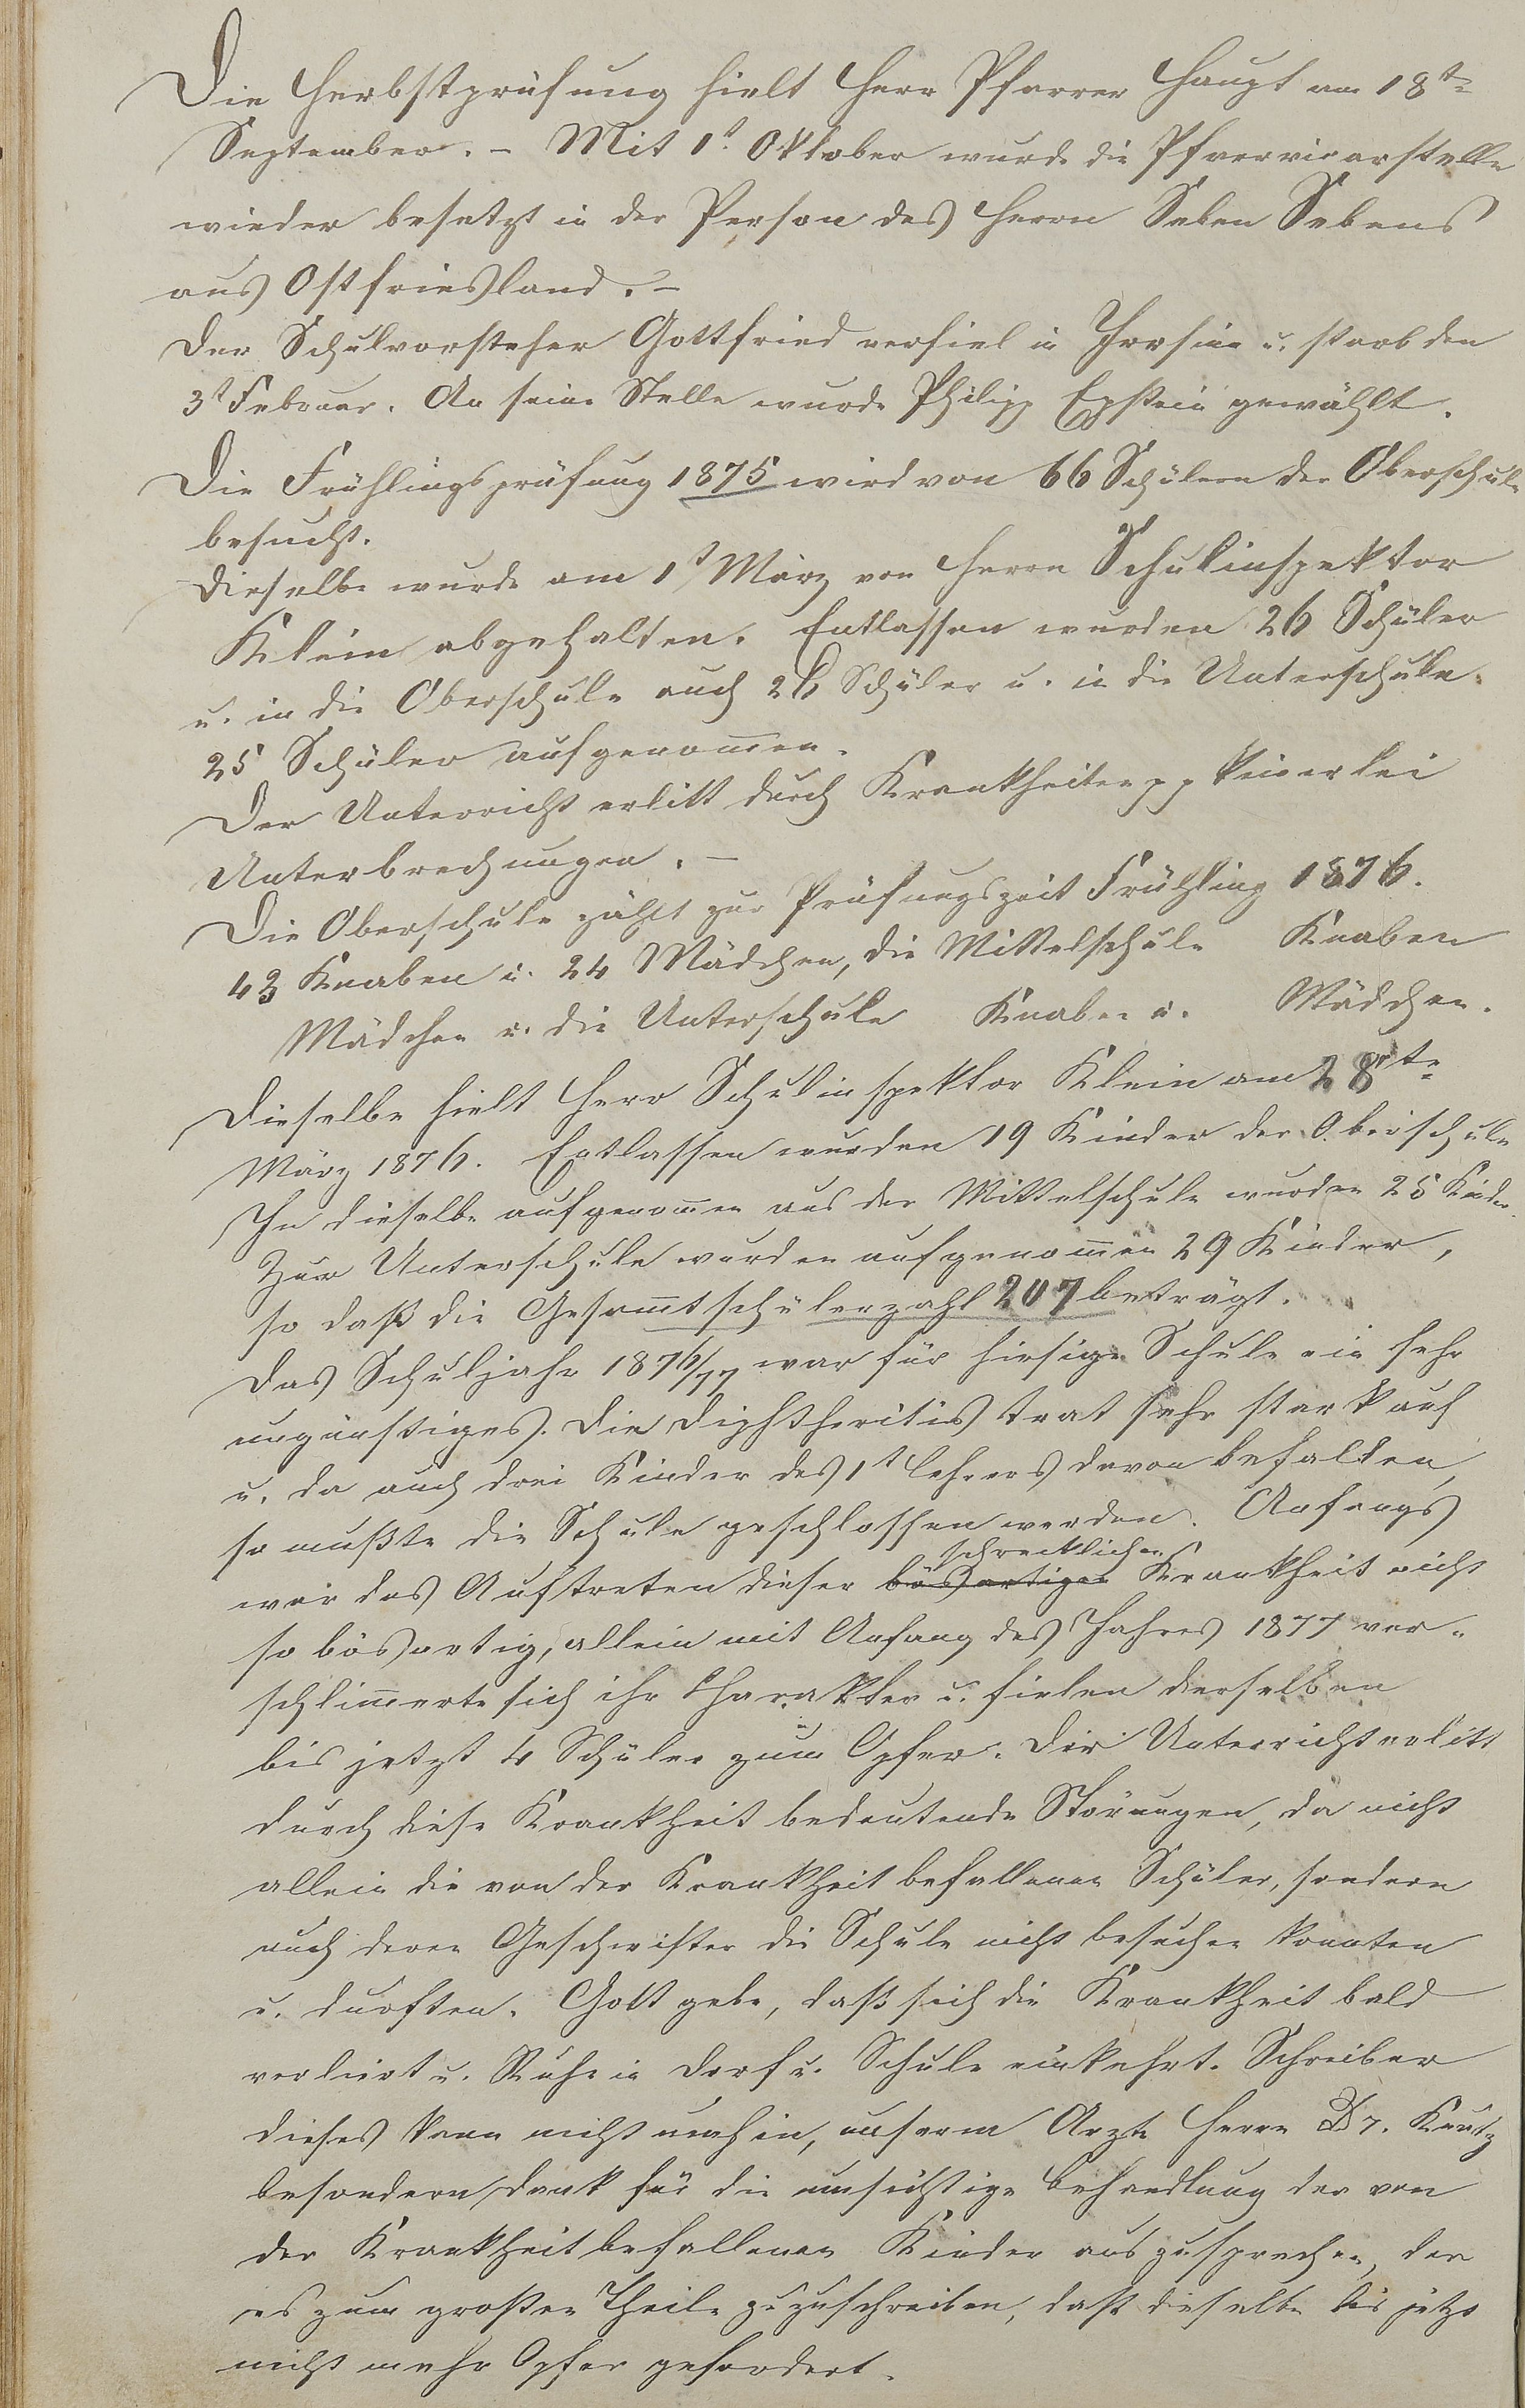 Die Herbstprüfung hielt Herr Pfarrer Haupt am 18te
September. – Mit 1t. Oktober wurde die Pfarrvicarstelle
wieder besetzt in der Person des Herrn Seben Sebens
aus Ostfriesland. –
Der Schulvorsteher Gottfried verfiel in Irrsinn u. starb den
3t Februar. An seine Stelle wurde Philipp Epstein gewählt.
Die Frühlingsprüfung 1875 wird von 66 Schülern der Oberschule
besucht.
Dieselbe wurde am 1t März von Herrn Schulinspektor
Klein abgehalten. Entlassen wurden 26 Schüler
u. in die Oberschule auch 26 Schüler u. in die Unterschule
25 Schüler aufgenom̄en.
Der Unterricht erlitt durch Krankheiten pp keinerlei
Unterbrechungen. –
Die Oberschule zählt zur Prüfungszeit Frühling 1876.
43 Knaben u. 24 Mädchen, die Mittelschule Knaben
Mädchen u. die Unterschule Knaben u. Mädchen.
Dieselbe hielt Herr Schulinspektor Klein am 28te
März 1876. Entlassen wurden 19 Kinder der Oberschule
In dieselbe aufgenom̄en aus der Mittelschule wurden 25 Kinder.
Zur Unterschule wurden aufgenom̄en 29 Kinder,
so daß die Gesam̄tschülerzahl 207 beträgt.
Das Schuljahr 1876/77 war für hiesige Schule ein sehr
ungünstiges. Die Diphtheritis trat sehr stark auf
u. da auch drei Kinder des 1t Lehrers davon befallen,
so mußte die Schule geschlossen werden. Anfangs
schrecklichen
war das Auftreten dieser bösartigen Krankheit nicht
so bösartig, allein mit Anfang des Jahres 1877 ver-
schlim̄erte sich ihr Charakter u. fielen derselben
bis jetzt 4 Schüler zum Opfer. Der Unterricht erlitt
durch diese Krankheit bedeutende Störungen, da nicht
allein die von der Krankheit befallenen Schüler, sondern
auch deren Geschwister die Schule nicht besuchen konnten
u. durften. Gott gebe, daß sich die Krankheit bald
verliert u. Ruhe in Dorf u. Schule einkehrt. Schreiber
dieses kann nicht umhin, unserm Arzte Herrn Dr.
besondern Dank für die umsichtige Behandlung der von
der Krankheit befallenen Kinder auszusprechen, der
es zum großen Theile zuzuschreiben, daß dieselbe bis jetzt
nicht mehr Opfer gefordert.